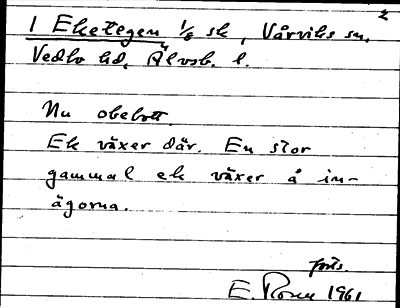 2
1 Eketegen 1/8 sk, Vårviks sn,
Vedbo hd, Älvsb. l.
Nu obebott.
Ek växer där. En stor
gammal ek växer å in-
ägorna.
forts.
E. Rosen 1961